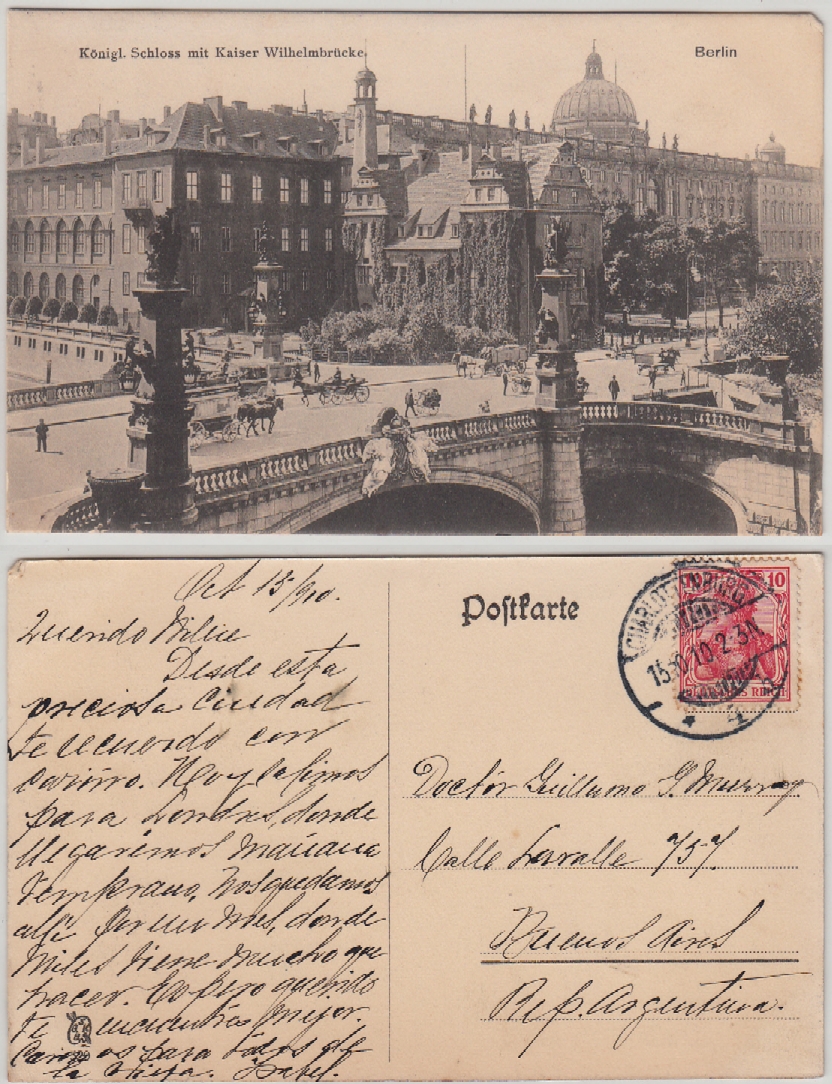 Königl. Schloss mit Kaiser Wilhelmbrücke.
Berlin
Oct 15/910.
Querido Willie
Desde esta
preciosa Ciudad
te recuerdo con
cariño. Hoy salimos
para Londres, donde
llegaremos mañana
temprano. Nos quedamos
allí por un mes, donde
Miles tiene mucho que
hacer. Espero querido
te encuentres mejor.
Cariños para todos de
la vieja. Isabel.
Postkarte
CHARLOTTENBURG
15.10.10.2-3N
10
DEUTSCHES REICH
Doctór Guillermo G. Murray
Calle Lavalle 757
Buenos Aires
Rep. Argentina.